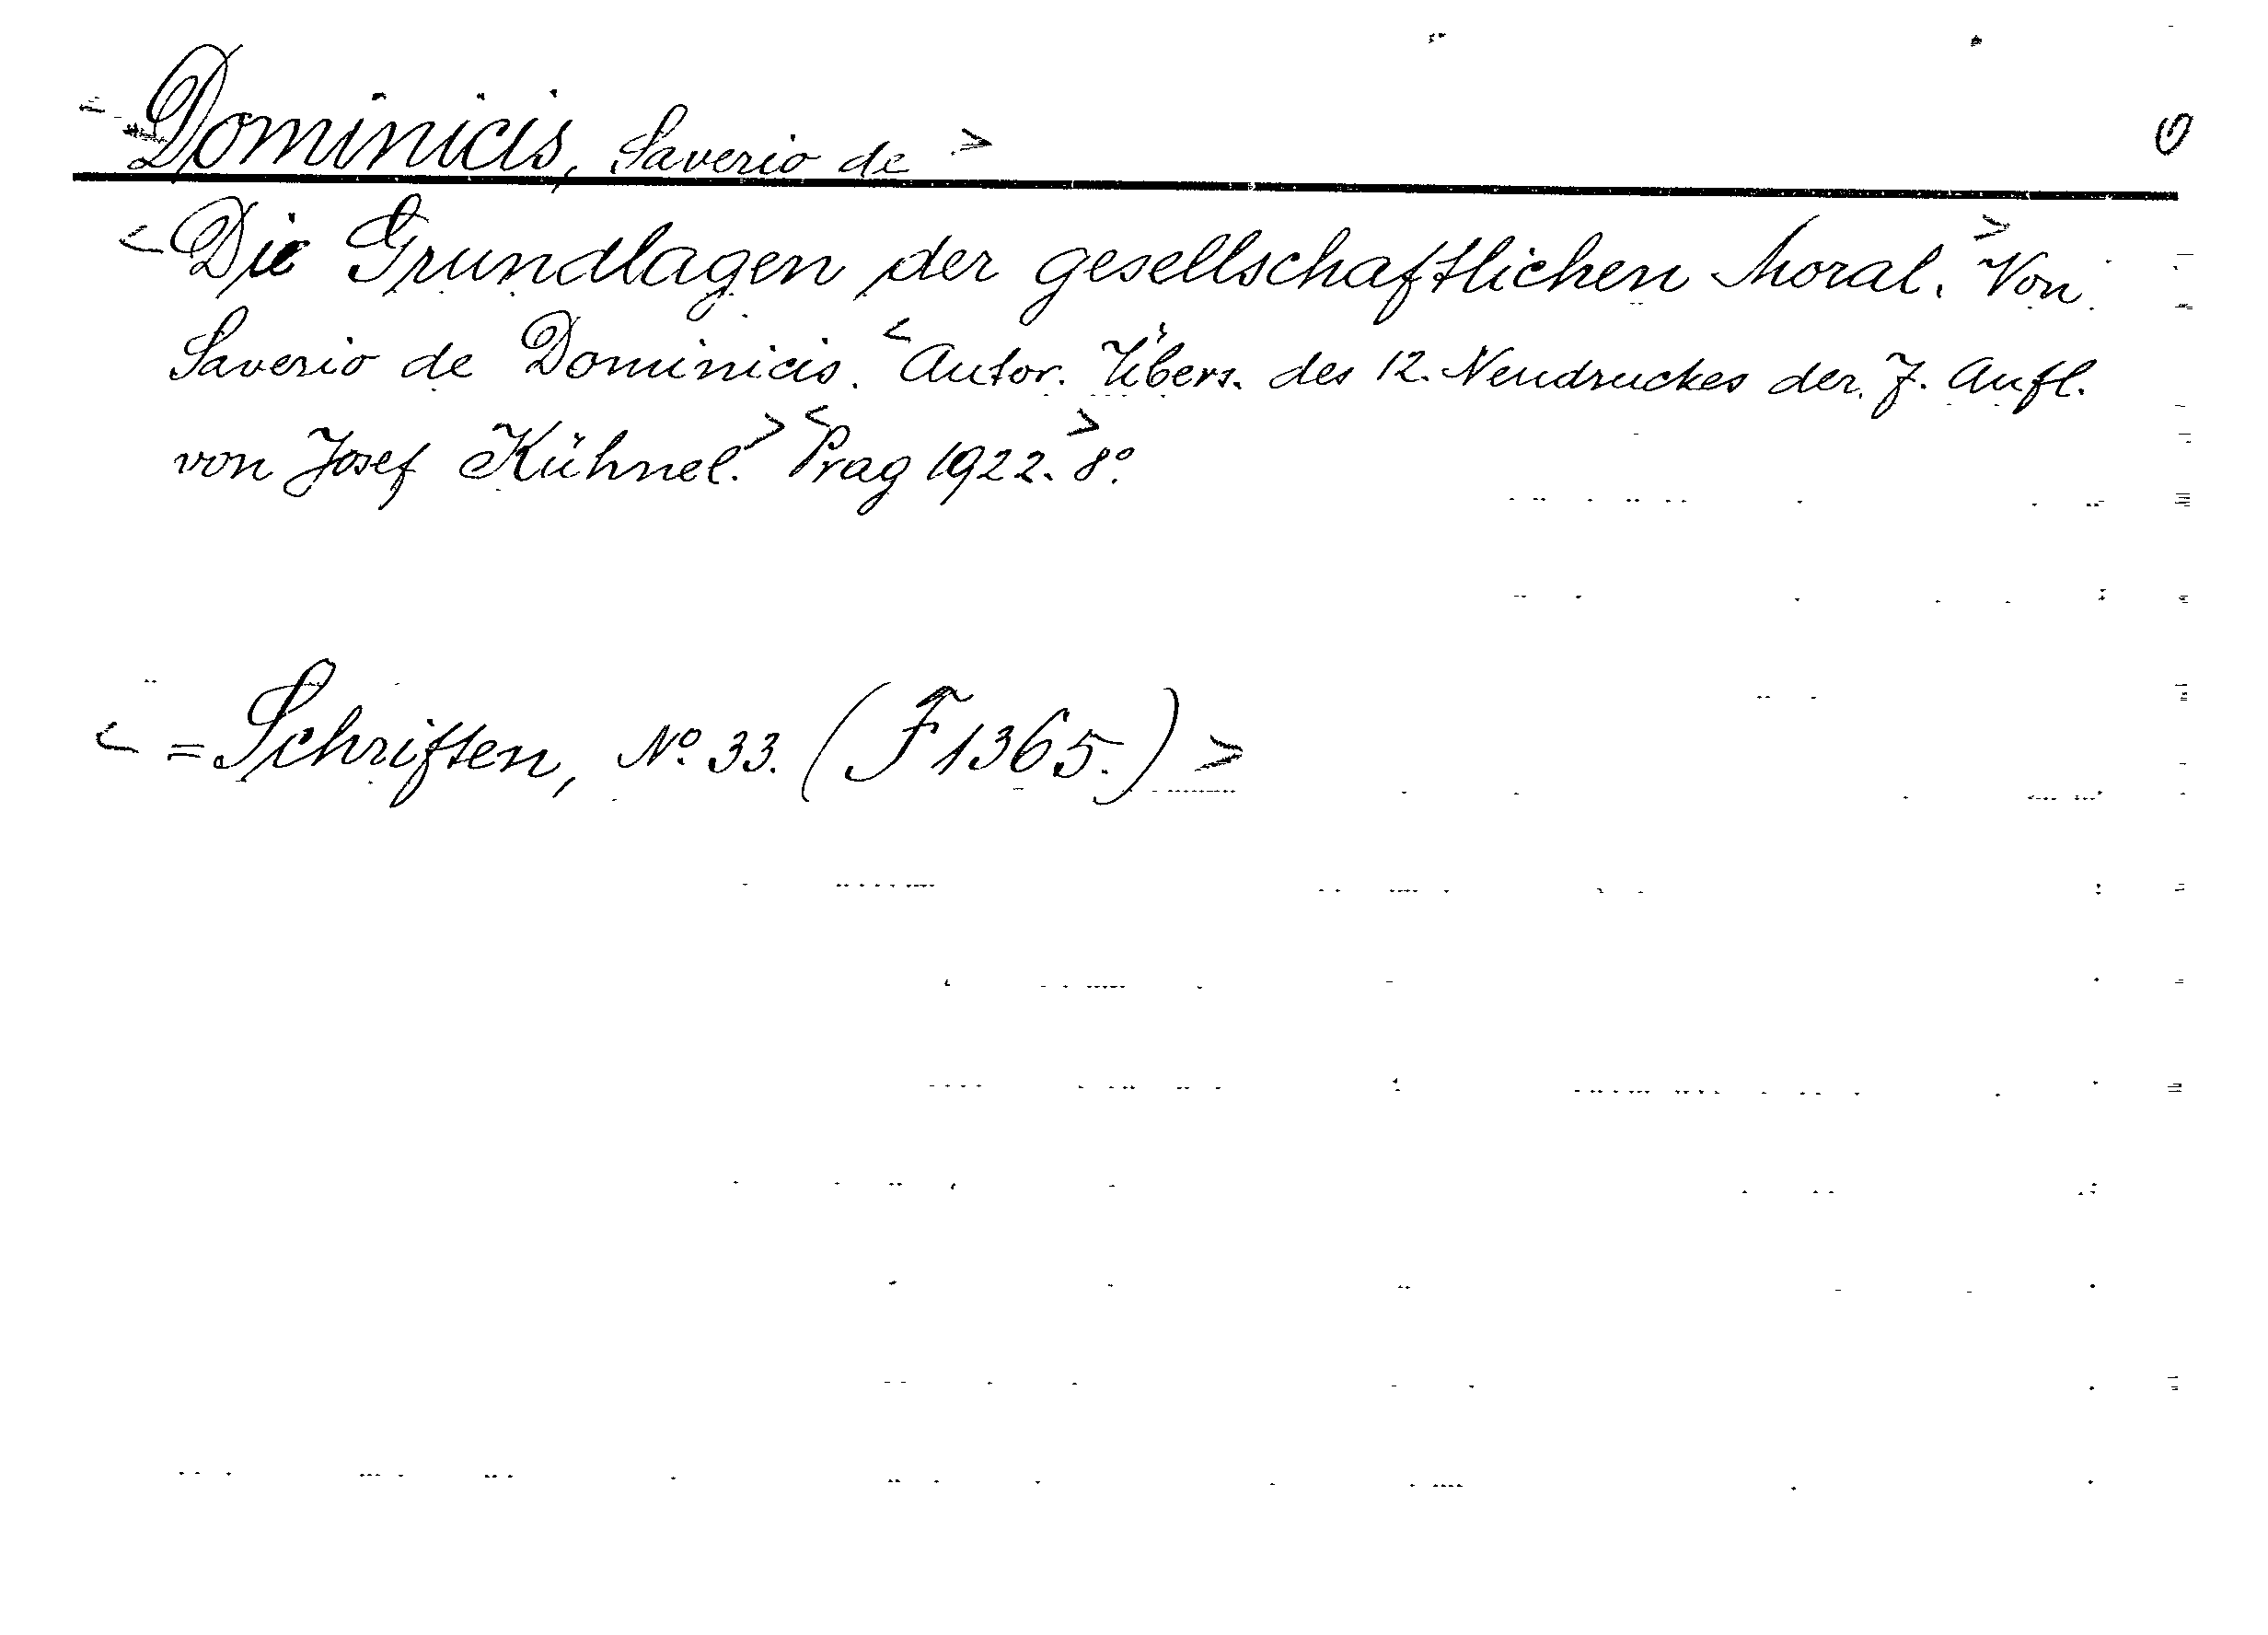 <Dominicis, Saverio de>
<Die Grundlagen der gesellschaftlichen Moral.> Von
Saverio de Dominicis. <Autor. Übers. des 12. Neudruckes der 7. Aufl.
von Josef Kühnel.> <Prag 1922.> 8°.
<=Schriften, No. 33. (F 1365.)>